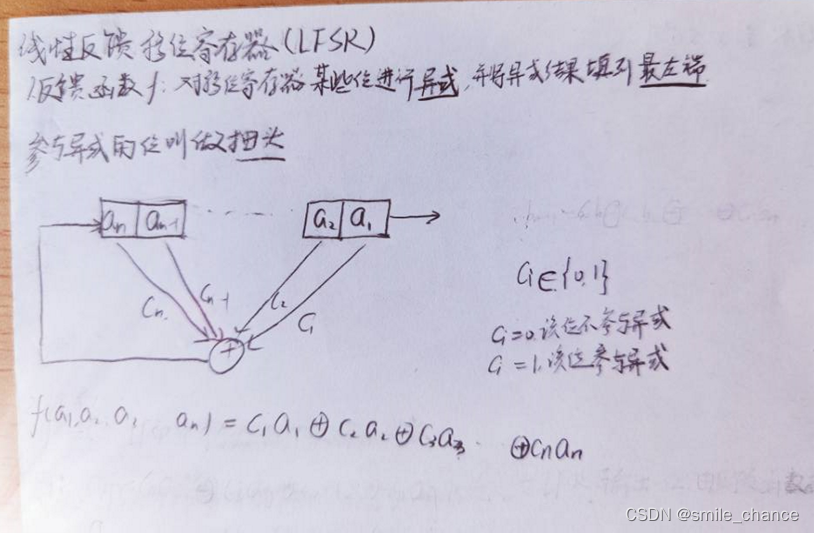 线性反馈移位寄存器(LFSR)
反馈函数f: 对移位寄存器某些位进行异或,并将异或结果填到最左端
参与异或的位叫做抽头
an an-1 ...... a2 a1
Cn Cn-1 C2 C1
+
Ci∈{0,1}
Ci=0.该位不参与异或
Ci=1.该位参与异或
f(a1,a2,a3 an)=C1a1⊕C2a2⊕C3a3. ⊕Cnan
CSDN @smile_chance